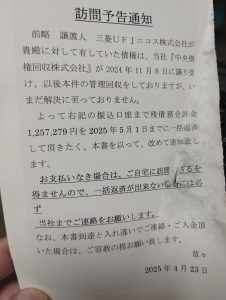 訪問予告通知
前略 譲渡人 三菱UFJニコス株式会社が
貴殿に対して有していた債権は、当社『中央債
権回収株式会社』が2024年11月8日に譲り受
け、以後本件の管理回収をしておりますが、い
まだ解決に至っておりません。
よって右記の振込口座まで残債務合計金
1,257,279円を2025年5月1日までに一括返済
して頂きたく、本書を以って、改めて通知致し
ます。
お支払いなき場合は、ご自宅に訪問 ざるを
得ませんので、一括返済が出来ない には必
ず
当社までご連絡をお願いします。
なお、本書到達と入れ違いでご連絡・ご入金頂
いた場合は、ご容赦の程お願い致します。
草々
2025年4月23日